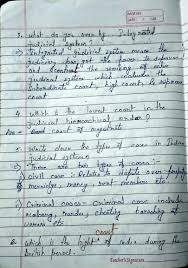 3. what do you mean by Integrated
judicial system?
Integrated judicial system means the
judiciary has got the power to
and the working of
judicial system which includes the
Subordinate court, high court & supreme
court
4. Which is the lowest court in the
judicial hierarchical order?
Ans - court of magistrate
5. Write down the types of cases in Indian
judicial system
There are two types of cases:-
i) Civil case :- Relates to rights over property
marriage, money, rent matters etc
ii) Criminal cases - Criminal case includes
robbing, murder, cheating, harassing of
women etc
court
6. Which is the highest of india during the
british period.
Teacher's Signature